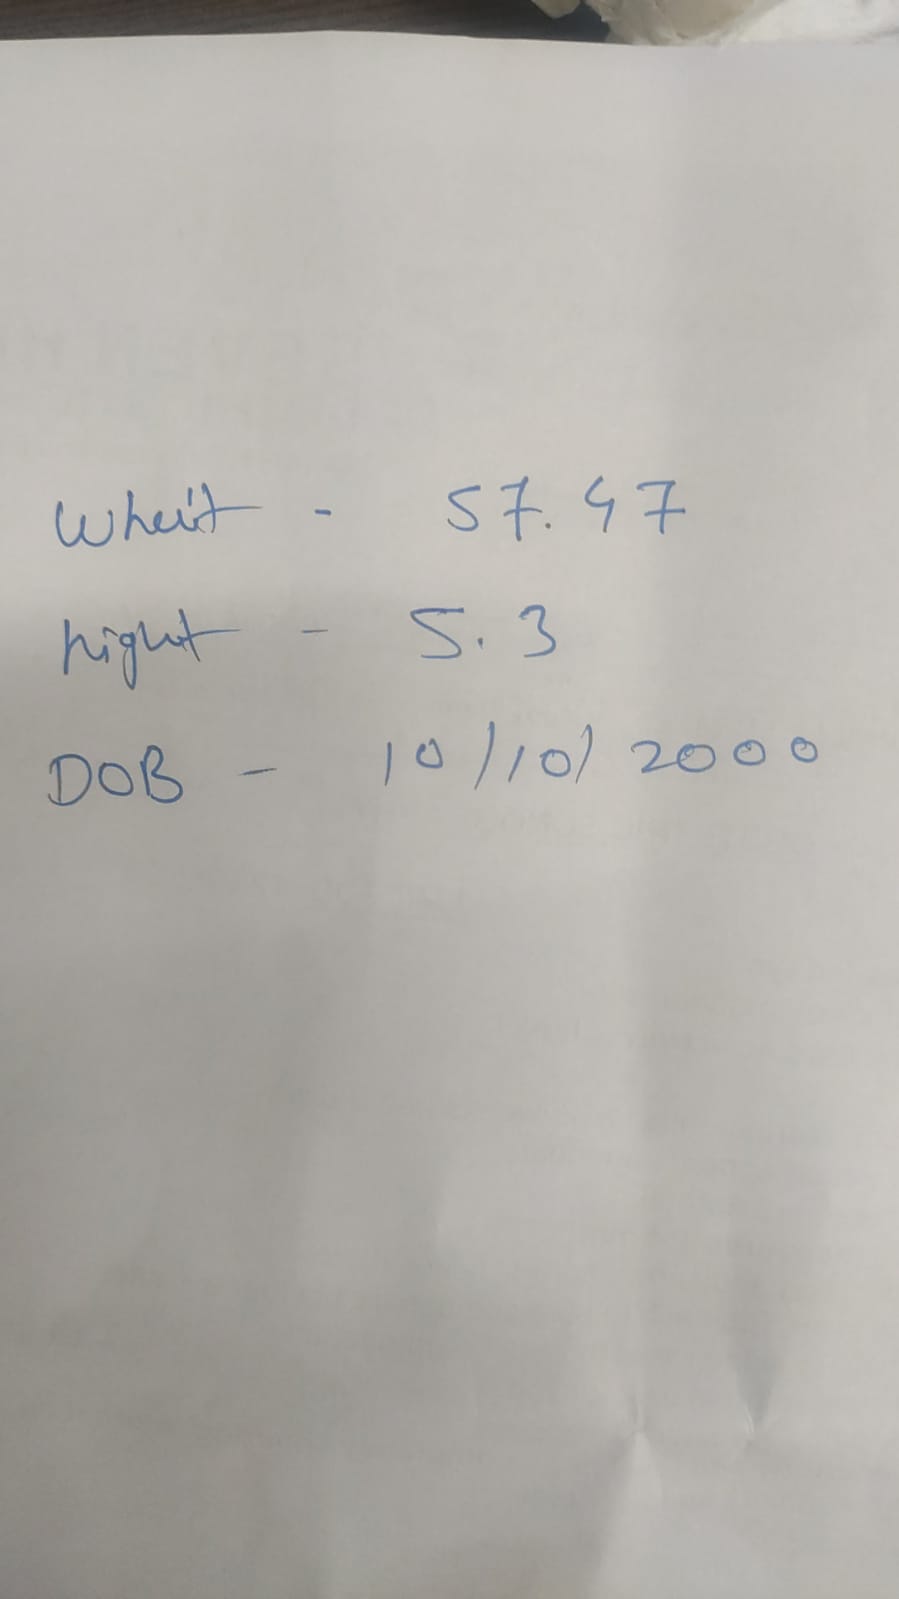 Wheit - 57.47
hight - 5.3
DOB - 10/10/2000